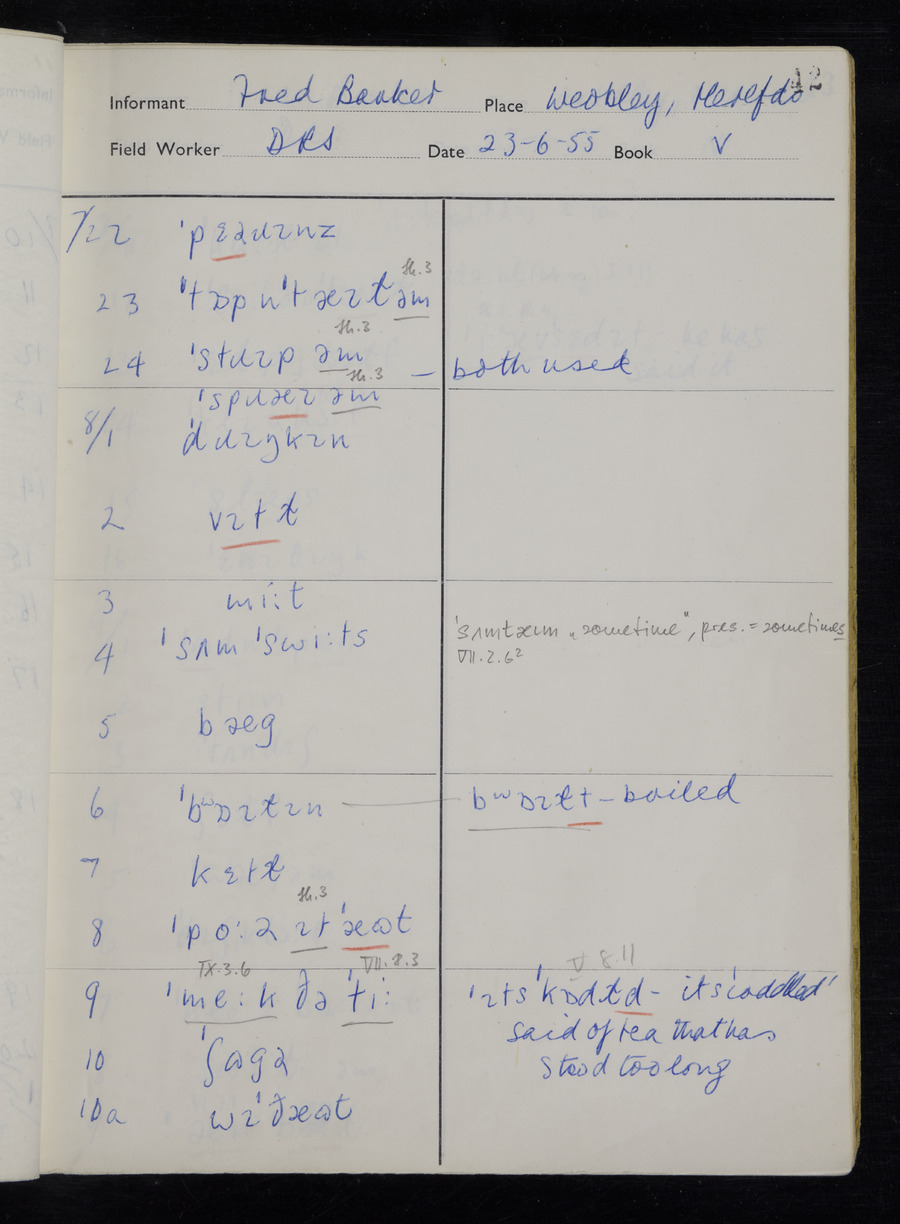 42
Informant Fred Barker Place Weobley, Herefds
Field Worker DRS Date 23-6-55 Book V
7/22 ˈpɛəɹɪnz
23 ˈtɒp nˈtæɪɫ əm
th.3
24 ˈstɹɪp əm — both used
th.3
ˈspɹæɪ əm
th.3
8/1 ˈdɹɪŋkɪn
2 vɪtɫ
3 mi:t
4 ˈsʌm ˈswi:ts ˈsʌmtæɪm „sometime", pres. = sometimes
VII.2.6²
5 bæg
6 ˈbʷɒɪɫɪn — bʷɒɪɫt – boiled
7 kɛtɫ
8 ˈpo:ə ɪt ˈæɷt
th.3
9 ˈme:k ðə ˈti: ˈɪts ˈkɒdɫd – it's 'coddled'
IX.3.6 VII.8.3 V.8.11
said of tea that has
stood too long
10 ˈʃɷgə
10a wɪˈðæɷt